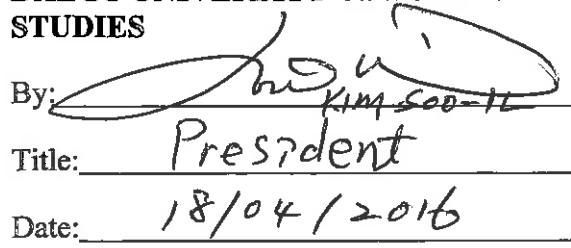 STUDIES
By: KIM SOO-IL
Title: President
Date: 18/04/2016